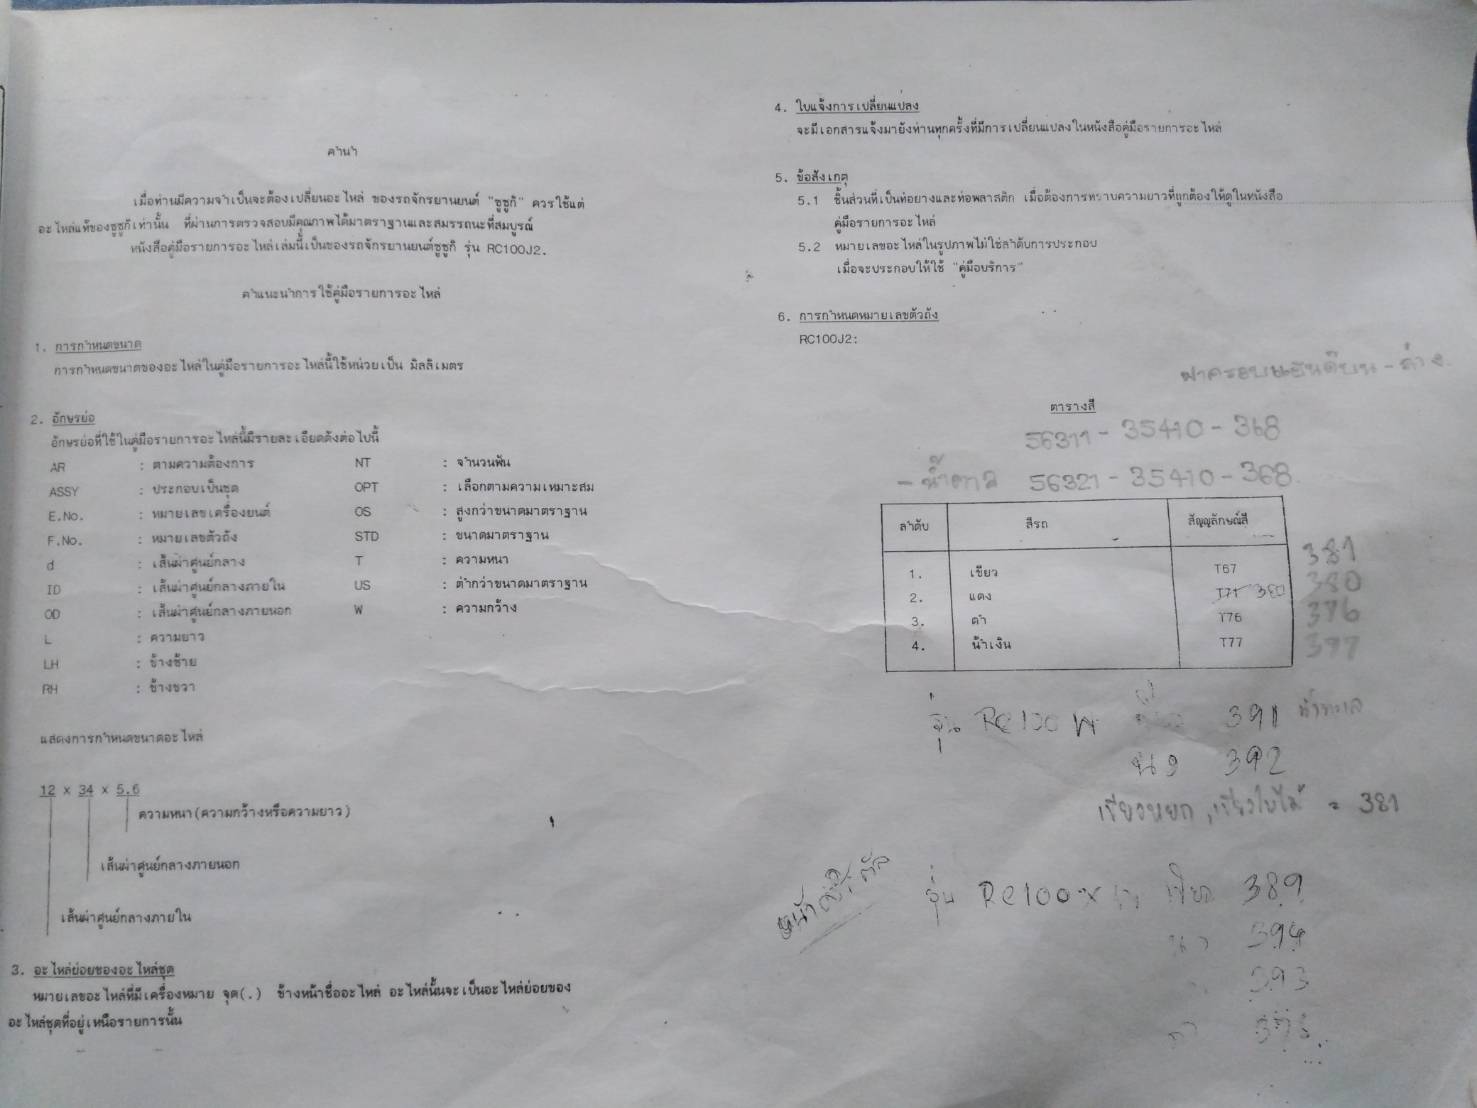 คำนำ
เมื่อท่านมีความจำเป็นจะต้องเปลี่ยนอะไหล่ ของรถจักรยานยนต์ "ซูซูกิ" ควรใช้แต่
อะไหล่แท้ของซูซูกิเท่านั้น ที่ผ่านการตรวจสอบมีคุณภาพได้มาตราฐานและสมรรถนะที่สมบูรณ์
หนังสือคู่มือรายการอะไหล่เล่มนี้เป็นของรถจักรยานยนต์ซูซูกิ รุ่น RC100J2.
คำแนะนำการใช้คู่มือรายการอะไหล่
1. การกำหนดขนาด
การกำหนดขนาดของอะไหล่ในคู่มือรายการอะไหล่นี้ใช้หน่วยเป็น มิลลิเมตร
2. อักษรย่อ
อักษรย่อที่ใช้ในคู่มือรายการอะไหล่นี้มีรายละเอียดดังต่อไปนี้
AR : ตามความต้องการ NT : จำนวนฟัน
ASSY : ประกอบเป็นชุด OPT : เลือกตามความเหมาะสม
E.No. : หมายเลขเครื่องยนต์ OS : สูงกว่าขนาดมาตราฐาน
F.No. : หมายเลขตัวถัง STD : ขนาดมาตราฐาน
d : เส้นผ่าศูนย์กลาง T : ความหนา
ID : เส้นผ่าศูนย์กลางภายใน US : ต่ำกว่าขนาดมาตราฐาน
OD : เส้นผ่าศูนย์กลางภายนอก W : ความกว้าง
L : ความยาว
LH : ข้างซ้าย
RH : ข้างขวา
แสดงการกำหนดขนาดอะไหล่
12 x 34 x 5.6
ความหนา(ความกว้างหรือความยาว)
เส้นผ่าศูนย์กลางภายนอก
เส้นผ่าศูนย์กลางภายใน
3. อะไหล่ย่อยของอะไหล่ชุด
หมายเลขอะไหล่ที่มีเครื่องหมาย จุด(.) ข้างหน้าชื่ออะไหล่ อะไหล่นั้นจะเป็นอะไหล่ย่อยของ
อะไหล่ชุดที่อยู่เหนือรายการนั้น
4. ใบแจ้งการเปลี่ยนแปลง
จะมีเอกสารแจ้งมายังท่านทุกครั้งที่มีการเปลี่ยนแปลงในหนังสือคู่มือรายการอะไหล่
5. ข้อสังเกตุ
5.1 ชิ้นส่วนที่เป็นท่อยางและท่อพลาสติก เมื่อต้องการทราบความยาวที่ถูกต้องให้ดูในหนังสือ
คู่มือรายการอะไหล่
5.2 หมายเลขอะไหล่ในรูปภาพไม่ใช่ลำดับการประกอบ
เมื่อจะประกอบให้ใช้ "คู่มือบริการ"
6. การกำหนดหมายเลขตัวถัง
RC100J2:
บน - ล่าง
ตารางสี
56311 - 35410 - 368
- น้ำตาล 56321 - 35410 - 368
ลำดับ สีรถ สัญญลักษณ์สี
1. เขียว T67 381
2. แดง T71 380 380
3. ดำ T76 376
4. น้ำเงิน T77 377
รุ่น RC100 W 391
392
เขียวหยก, เขียวใบไม้ = 381
รุ่น RC100 X 389
394
393